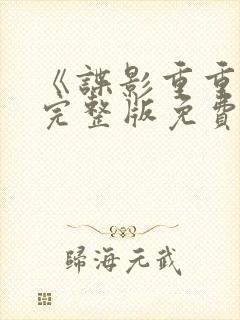 《諜影重重
完整版免費
歸海元武